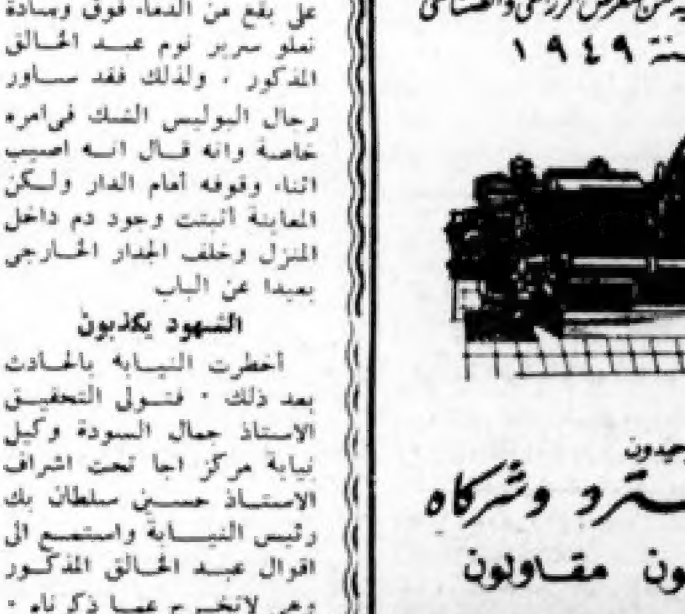 على بقع من الدماء فوق وسادة
تعلو سرير نوم عبد الخالق
المذكور ٠ ولذلك فقد ساور
رجال البوليس الشك فى امره
خاصة وانه قال انه اصيب
اثناء وقوفه أمام الدار ولكن
المعاينة أثبتت وجود دم داخل
المنزل وخلف الجدار الخارجى
بعيدا عن الباب
الشهود يكذبون
أخطرت النيابه بالحادث
بعد ذلك ٠ فتولى التحقيق
الاستاذ جمال السودة وكيل
نيابة مركز اجا تحت اشراف
الاستاذ حسين سلطان بك
رئيس النيابة واستمع الى
اقوال عبد الخالق المذكور
وهى لاتخرج عما ذكرناه ٠
١٩٤٩
وشركاه
مقاولون